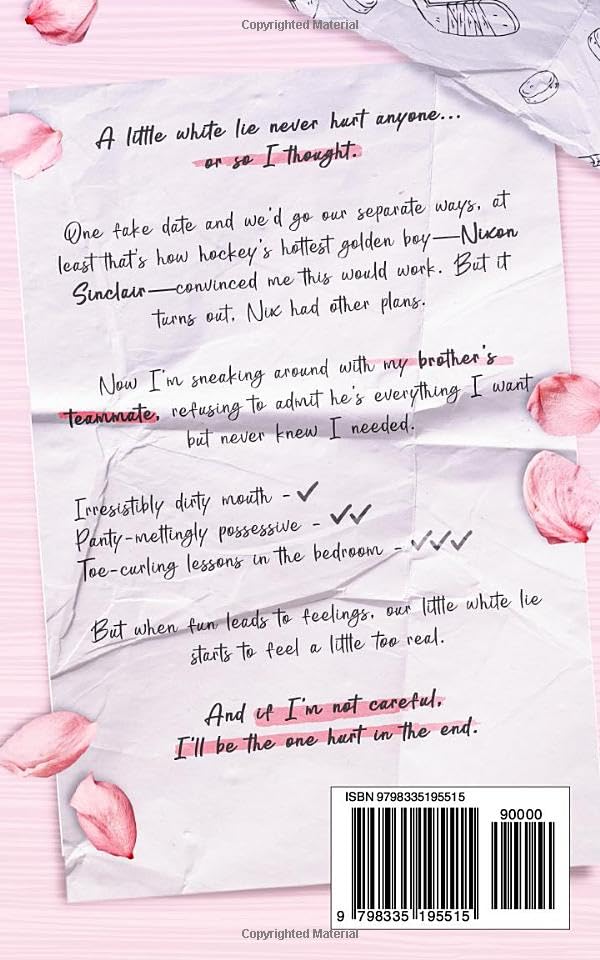 Copyrighted Material
A little white lie never hurt anyone...
or so I thought.
One fake date and we'd go our separate ways, at
least that's how hockey's hottest golden boy—Nixon
Sinclair—convinced me this would work. But it
turns out, Nix had other plans.
Now I'm sneaking around with my brother's
teammate, refusing to admit he's everything I want
but never knew I needed.
Irresistibly dirty mouth - ✓
Panty-meltingly possessive - ✓✓
Toe-curling lessons in the bedroom - ✓✓✓
But when fun leads to feelings, our little white lie
starts to feel a little too real.
And if I'm not careful,
I'll be the one hurt in the end.
ISBN 9798335195515
90000
9 798335 195515
Copyrighted Material